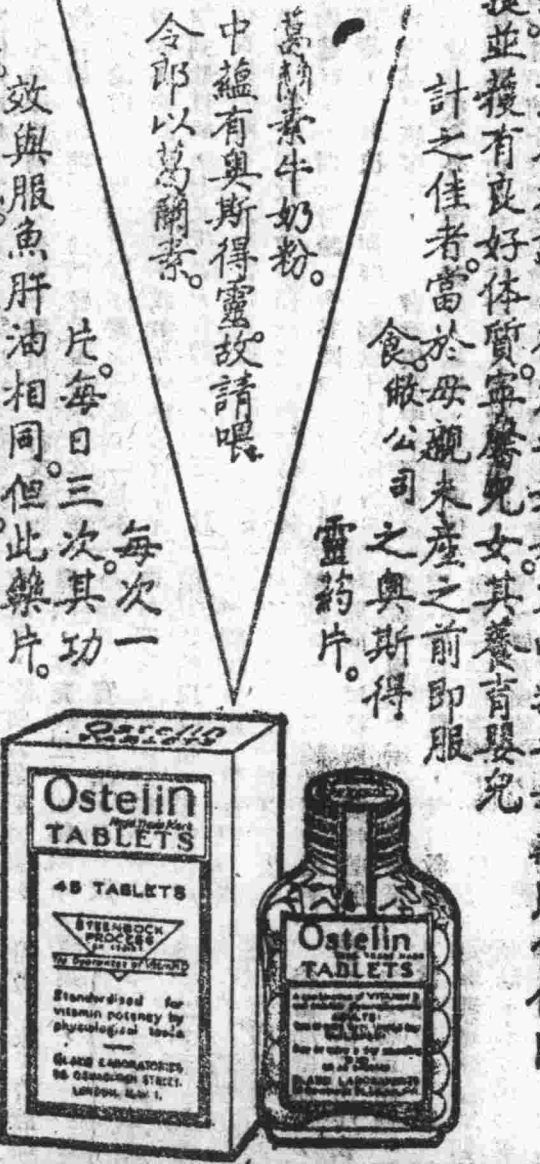 並獲有良好体質。寧馨兒女。其養育嬰兒
計之佳者。當於母親未產之前即服
食。敝公司之奧斯得
靈药片。
葛蘭素牛奶粉。
中蘊有奧斯得靈。故請喂
令郎以葛蘭素。
每次一
片。每日三次。其功
效與服魚肝油相同。但此藥片。
Ostelin
TABLETS
Ostelin
TABLETS
45 TABLETS
STEENBOCK
PROCESS
Standardised for
vitamin potency by
physiological tests
GLAXO LABORATORIES
56 OSNABURGH STREET.
LONDON, N.W. 1.
Ostelin
TABLETS
ADULTS:
GLAXO LABORATORIES